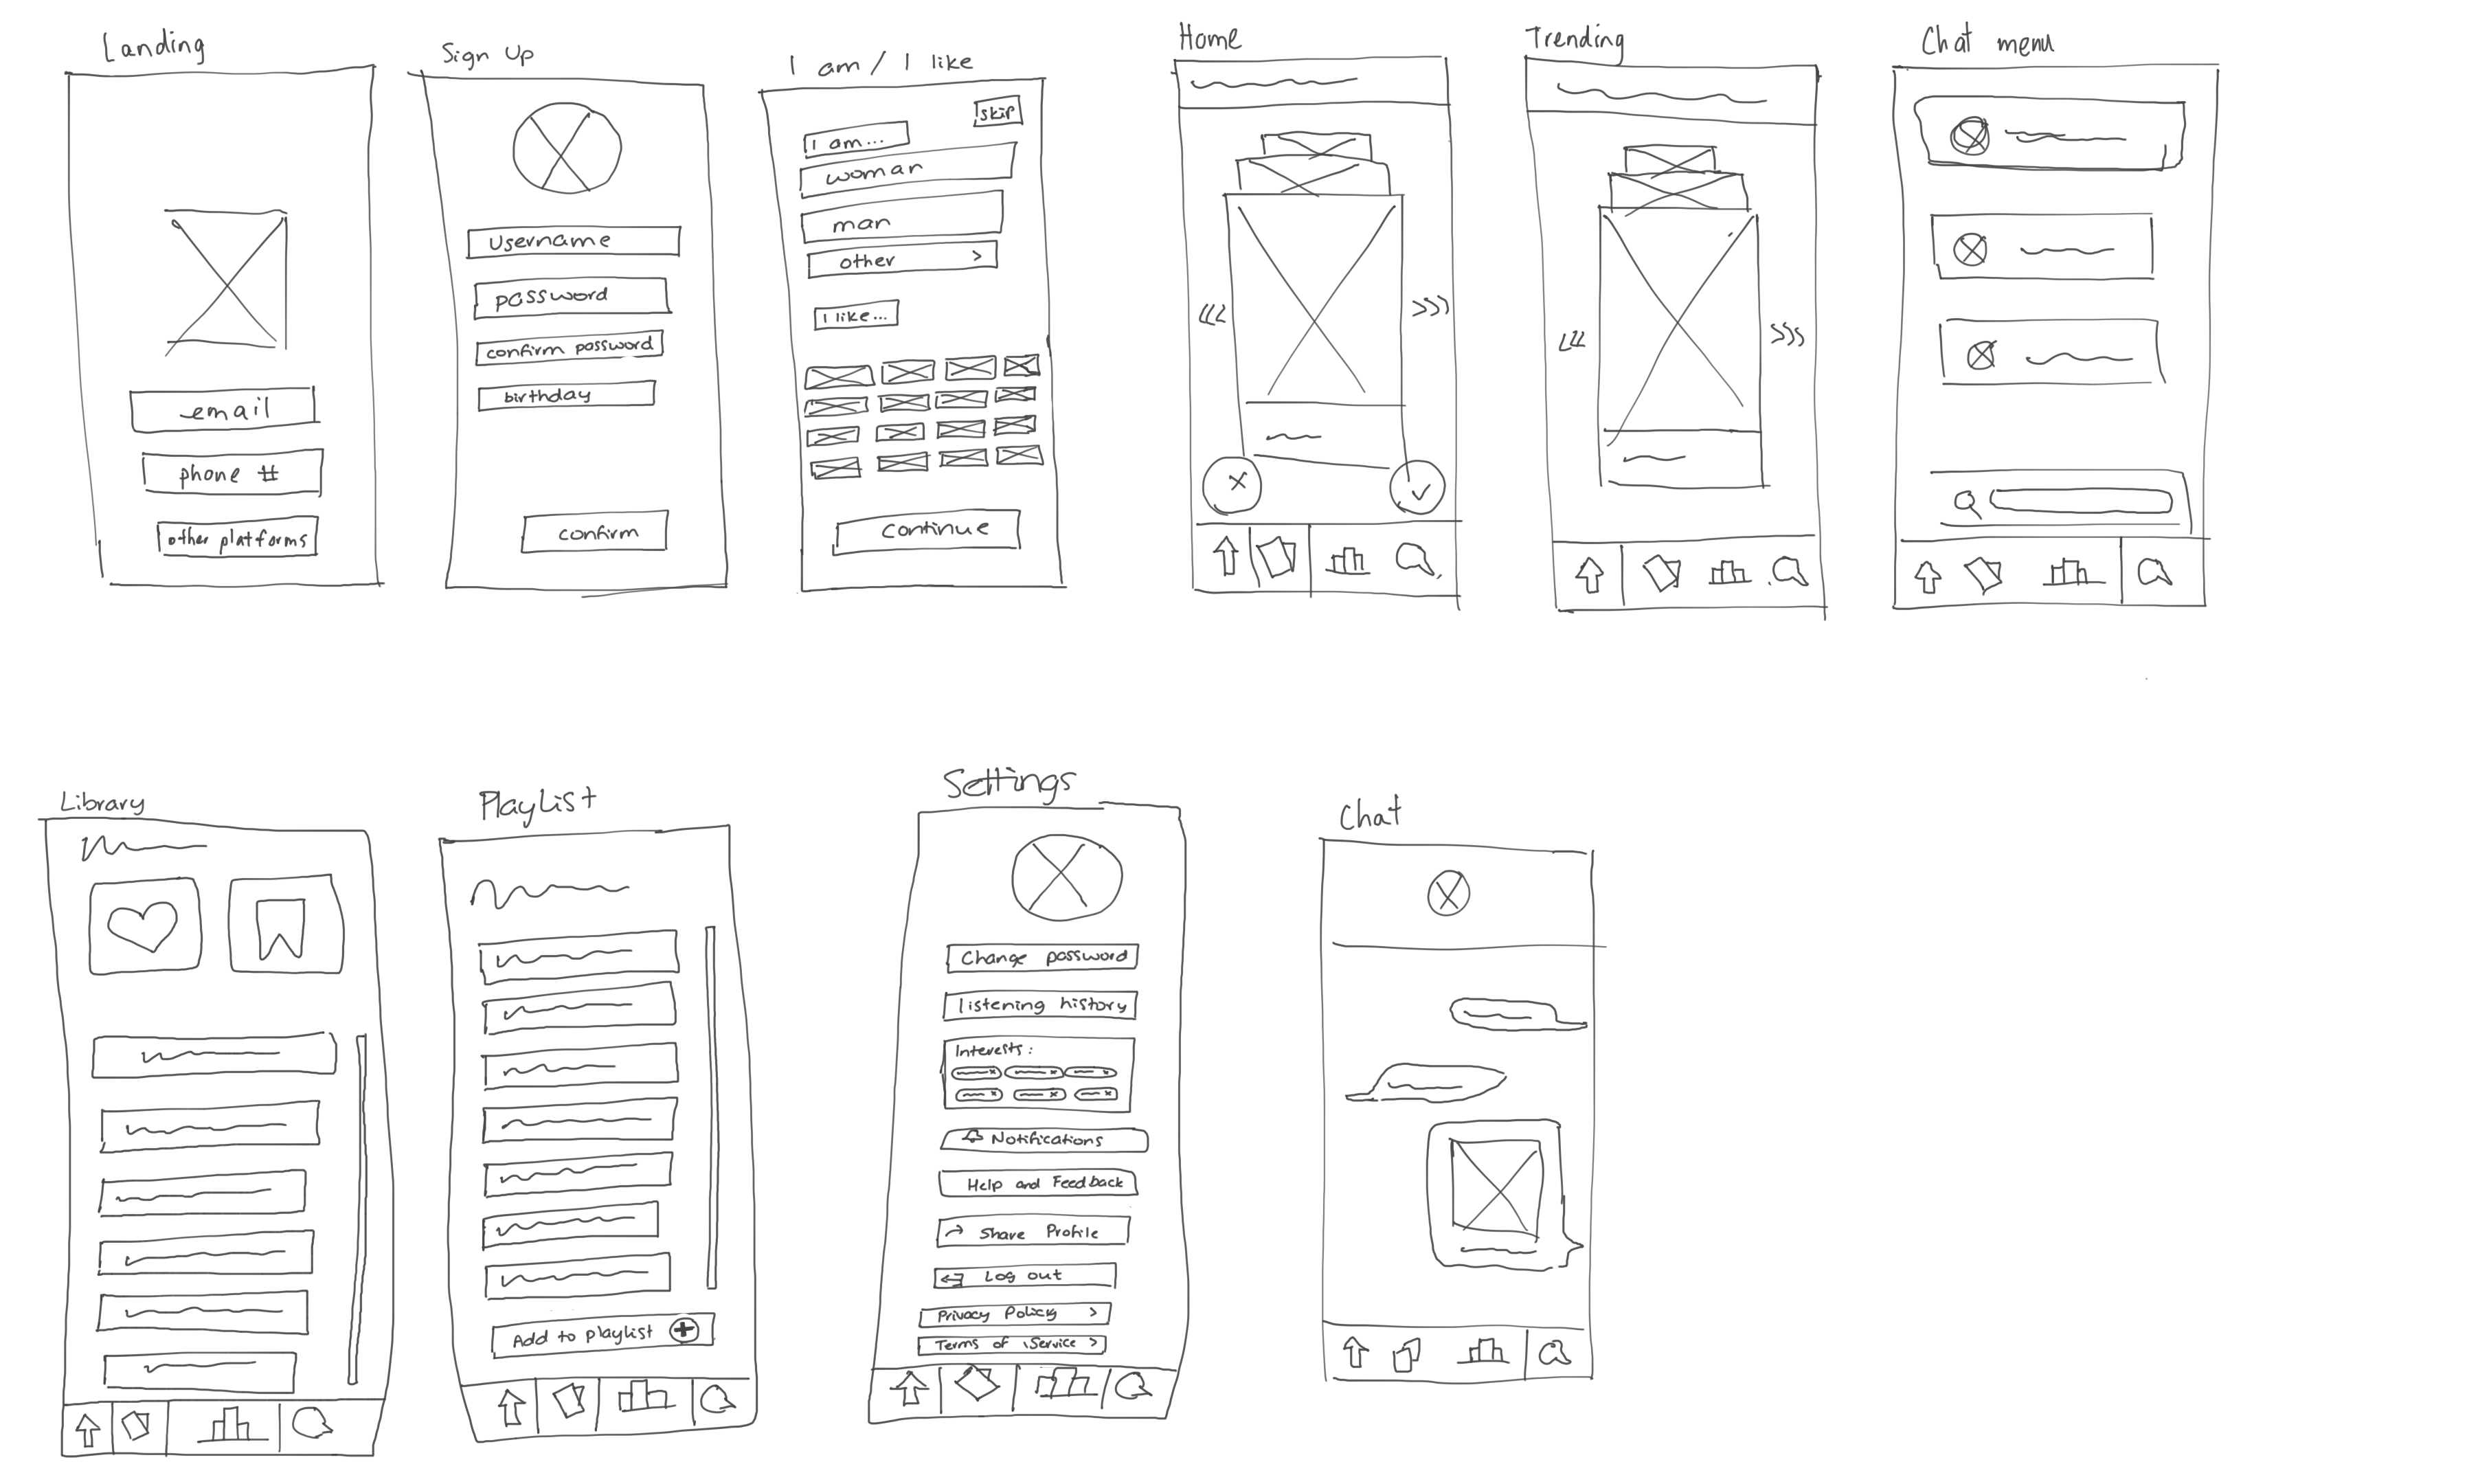 Landing
email
phone #
other platforms
Sign Up
Username
password
confirm password
birthday
confirm
I am / I like
skip
I am...
woman
man
other >
I like...
continue
Home
Trending
Chat menu
Library
Playlist
Add to playlist
Settings
Change password
listening history
Interests:
Notifications
Help and Feedback
Share Profile
Log out
Privacy Policy >
Terms of Service >
Chat